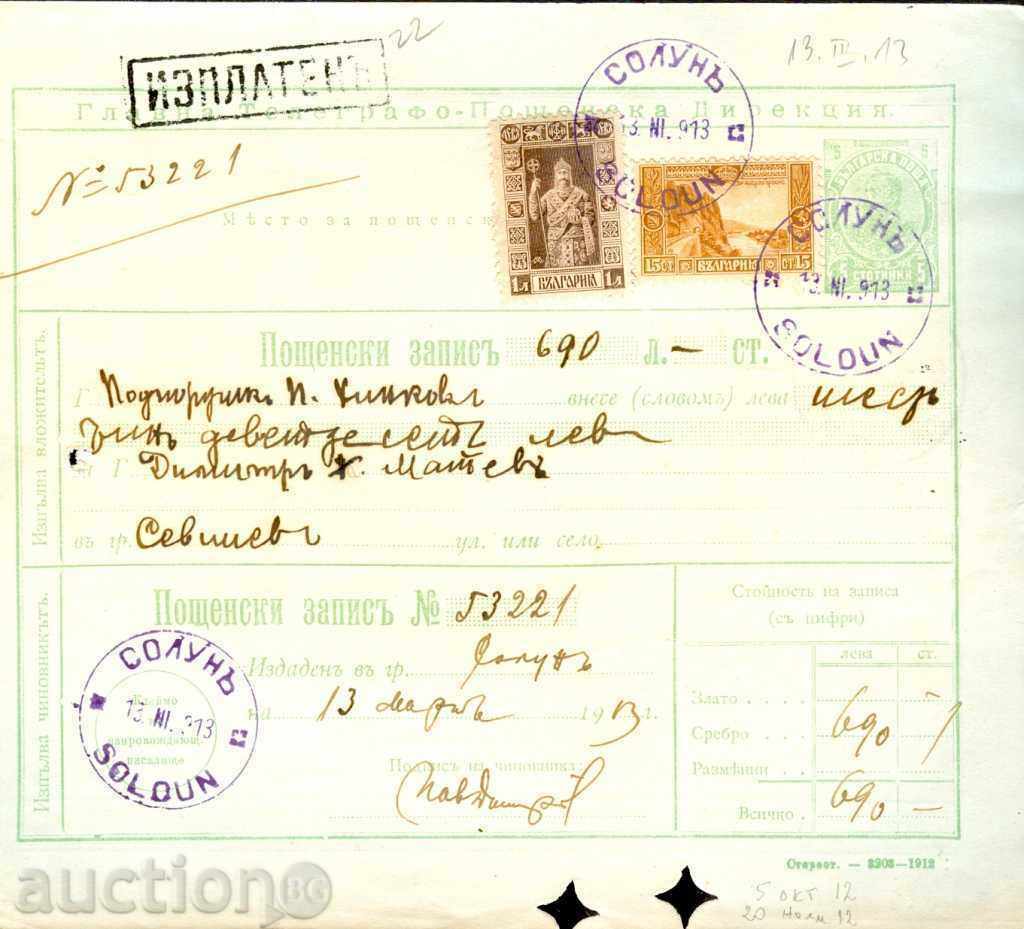 22
13.III.13
ИЗПЛАТЕНЪ
СОЛУНЪ
13.III.913
SOLOUN
Главна Телеграфо-Пощенска Дирекция.
№ 53221
Мѣсто за пощенск
1Л БЪЛГАРИЯ 1Л
15 СТ. БЪЛГАРИЯ СТ. 15
5 5
5 СТОТИНКИ 5
СОЛУНЪ
13.III.913
SOLOUN
Изпълва вложительтъ.
Пощенски записъ 690 л. — ст.
Г П. внесе (словомъ) лева шесть
деветдесеть лева
Г. Димитръ Х. Матевъ
въ гр. Севлиево ул. или село
Изпълва чиновникътъ.
Пощенски записъ № 53221
Издаденъ въ гр. Солунъ
на 13 мартъ 1913 г.
Подпись на чиновника:
СОЛУНЪ
13.III.913
SOLOUN
Клеймо
Стойность на записа
(съ цифри)
лева ст.
Злато
Сребро 690
Размѣнни
Всичко 690 —
1912
5 окт 12
20 12
auction BG